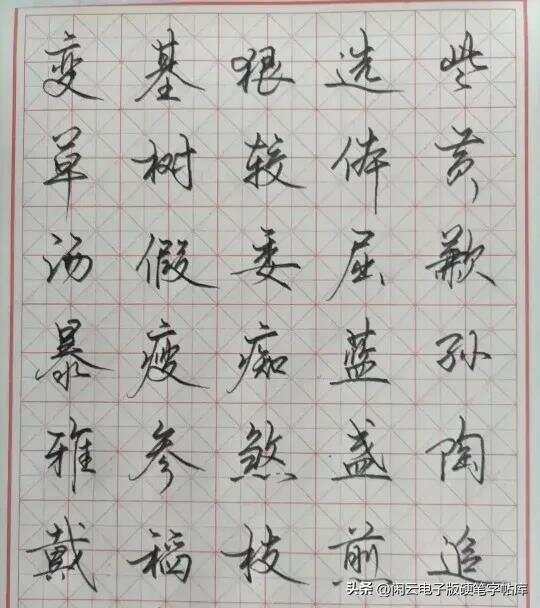 变基狠选些
草树较体黄
汤假委屈歉
暴瘦痴蓝孙
雅参煞盏陶
戴福枝煎追
头条 @闲云电子版硬笔字帖库